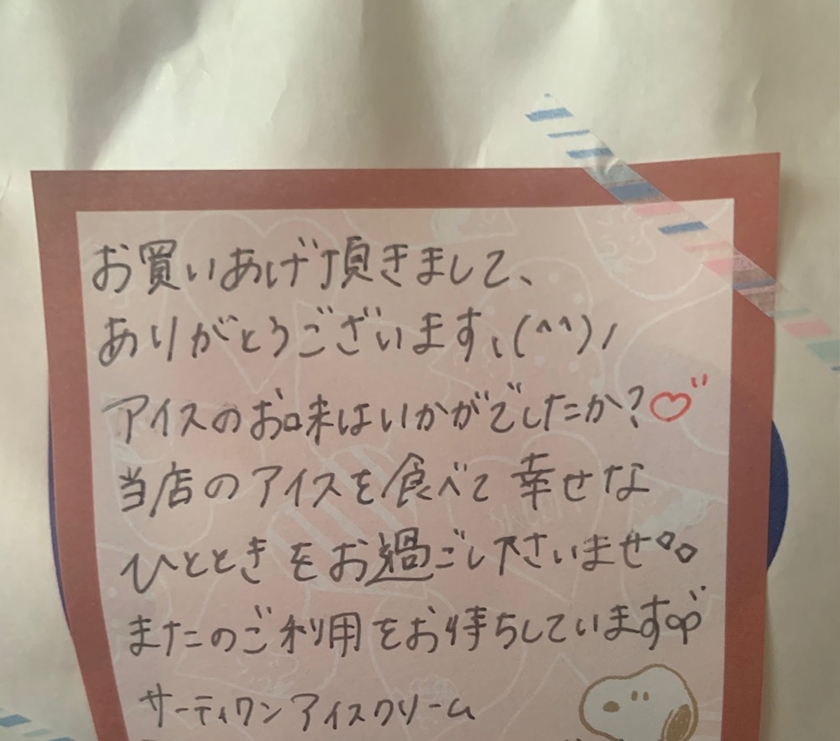 お買いあげ頂きまして、
ありがとうございます、(^^)ノ
アイスのお味はいかがでしたか?♡"
当店のアイスを食べて幸せな
ひとときをお過ごし下さいませ°。
またのご利用をお待ちしています
サーティワンアイスクリーム